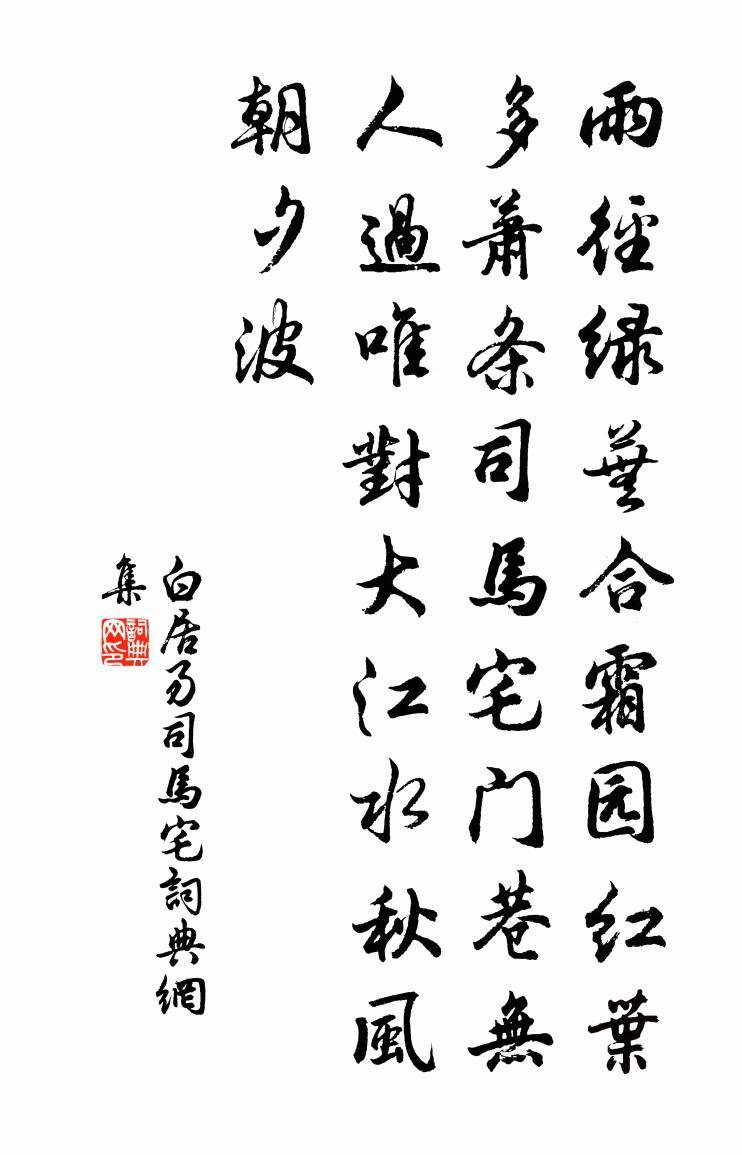 雨徑綠蕪合霜园红葉
多蕭条司馬宅门巷無
人過唯對大江水秋風
朝夕波
白居易司馬宅詞典網
集
詞典
网印